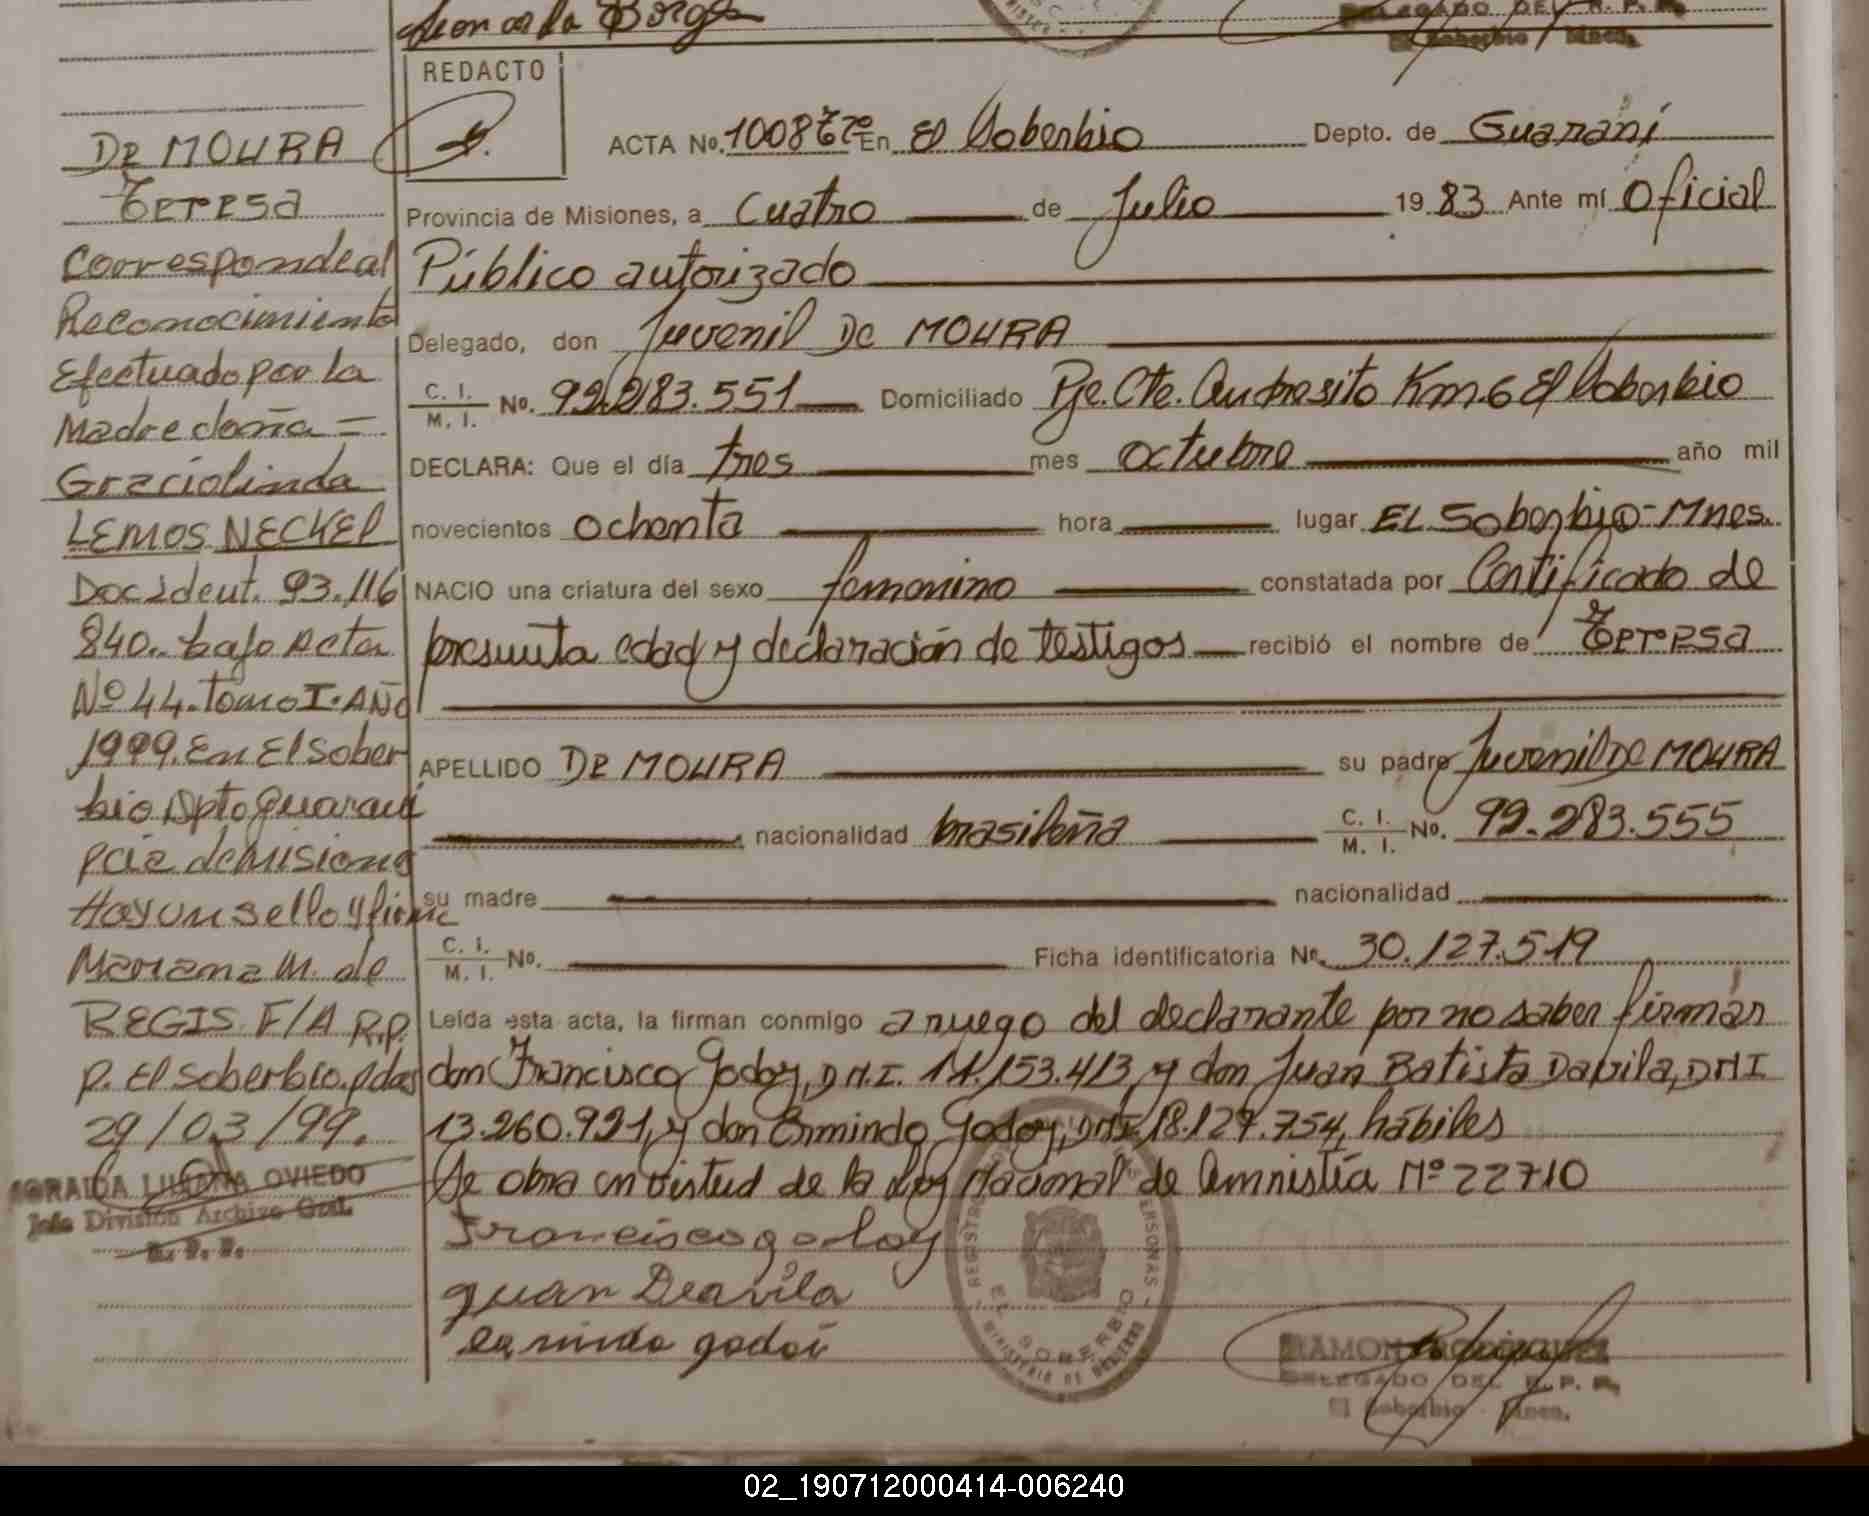 Leonarda Borges
DELEGADO DEL R. P. P.
El Soberbio Mnes.
REDACTO
ACTA No. 1008 Tº 7º En El Soberbio Depto. de Guaraní
Provincia de Misiones, a Cuatro de Julio 19 83 Ante mí Oficial
Público autorizado
Delegado, don Juvenil De MOURA
C. I. / M. I. No. 92.283.551 Domiciliado Pje. Cte. Andresito Km. 6 El Soberbio
DECLARA: Que el día tres mes octubre año mil
novecientos ochenta hora lugar EL Soberbio-Mnes.
NACIO una criatura del sexo femenino constatada por Certificado de
presunta edad y declaración de testigos recibió el nombre de Teresa
APELLIDO De MOURA su padre Juvenil De MOURA
nacionalidad brasileña C. I. / M. I. No. 92.283.555
su madre nacionalidad
C. I. / M. I. No. Ficha identificatoria No. 30.127.519
Leída esta acta, la firman conmigo a ruego del declarante por no saber firmar
don Francisco Godoy, D.N.I. 11.153.413, y don Juan Batista Davila, DNI
13.260.921, y don Ermindo Godoy, DNI 18.127.754, hábiles
Se obra en virtud de la Ley Nacional de Amnistía Nº 22710
Francisco godoy
Juan Deavila
ermindo godoi
REGISTRO PERSONAS
EL SOBERBIO
MINISTERIO DE GOBIERNO
RAMON RODRIGUEZ
DELEGADO DEL R. P. P.
El Soberbio Mnes.
De MOURA
Teresa
Corresponde al
Reconocimiento
Efectuado por la
Madre doña =
Graciolinda
LEMOS NECKEL
Doc Ident. 93.116
840. bajo Acta
Nº 44. Tomo I. AÑO
1999. En El Sober
bio Dpto Guaraní
Pcia de Misiones
Hay un sello y firma
Mariana M. de
REGIS F/A R.P.
P. El Soberbio. Pdas
29/03/99.
LILIANA OVIEDO
Jefe División Archivo Gral.
R. P. P.
02_190712000414-006240